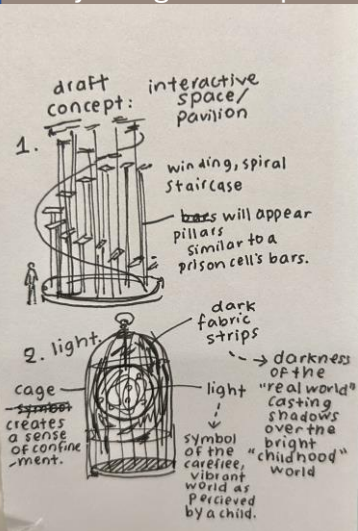 draft
concept:
interactive
space/
pavilion
1.
winding, spiral
staircase
bars will appear
pillars
similar to a
prison cell's bars.
2. light.
dark
fabric
strips
darkness
of the
"real world"
casting
shadows
over the
bright
"childhood"
world
cage
symbol
creates
a sense
of confine
-ment.
light
symbol
of the
carefree,
vibrant
world as
percieved
by a child.